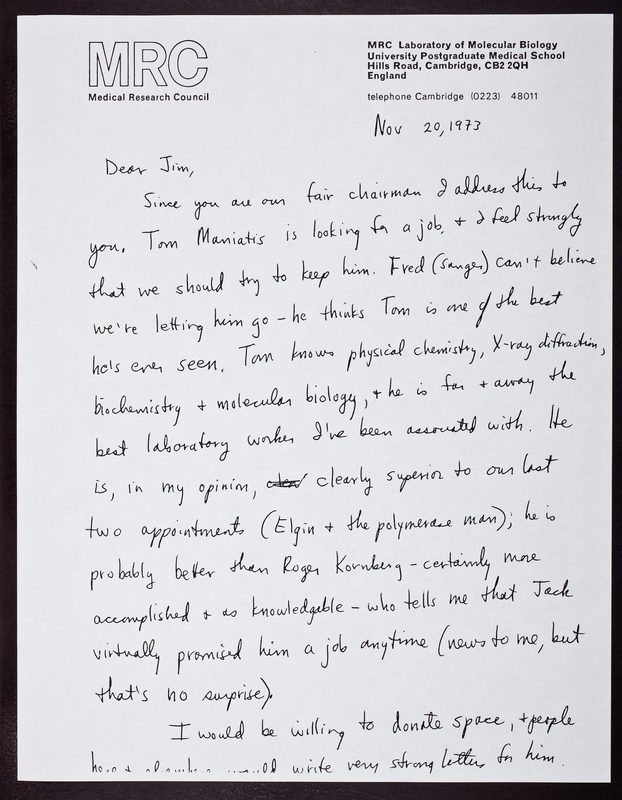 MRC
Medical Research Council
MRC Laboratory of Molecular Biology
University Postgraduate Medical School
Hills Road, Cambridge, CB2 2QH
England
telephone Cambridge (0223) 48011
Nov 20, 1973
Dear Jim,
Since you are our fair chairman I address this to
you. Tom Maniatis is looking for a job, + I feel strongly
that we should try to keep him. Fred (Sanger) can't believe
we're letting him go – he thinks Tom is one of the best
he's ever seen. Tom knows physical chemistry, X-ray diffraction,
biochemistry + molecular biology, + he is far + away the
best laboratory worker I've been associated with. He
is, in my opinion, clearly superior to our last
two appointments (Elgin + the polymerase man); he is
probably better than Roger Kornberg – certainly more
accomplished + as knowledgable – who tells me that Jack
virtually promised him a job anytime (news to me, but
that's no surprise).
I would be willing to donate space, + people
here + elsewhere would write very strong letters for him.